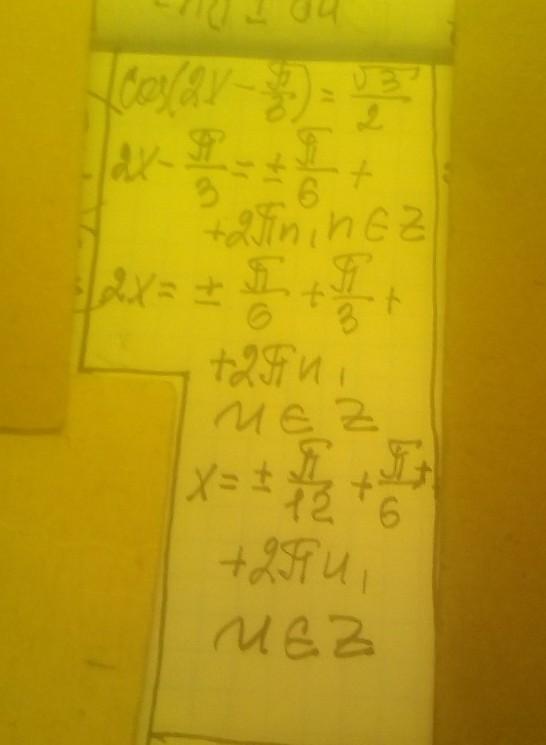 cos(2x - π/3) = √3/2
2x - π/3 = ± π/6 +
+2πn, n ∈ Z
2x = ± π/6 + π/3 +
+2πn,
n ∈ Z
x = ± π/12 + π/6 +
+2πn,
n ∈ Z